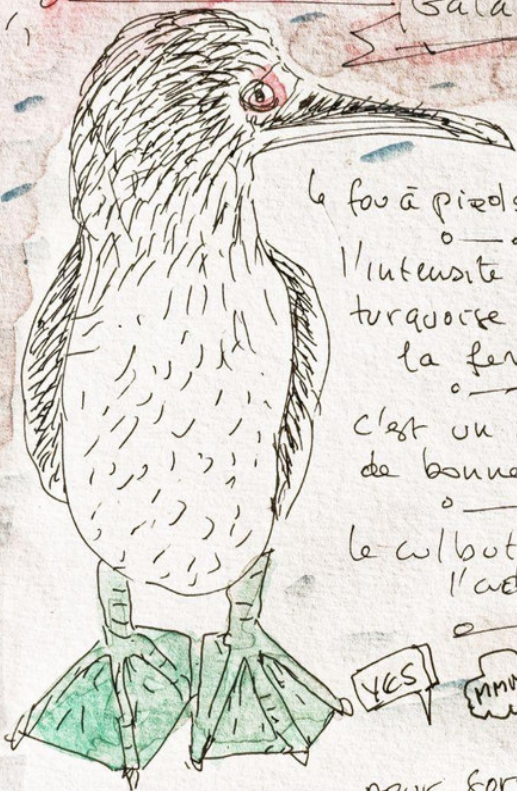 Gala
le fou à pieds
l'intensite
turquoise
la fem
c'est un
de bonne
le culbut
l'œ
YES
MMM
pour sor